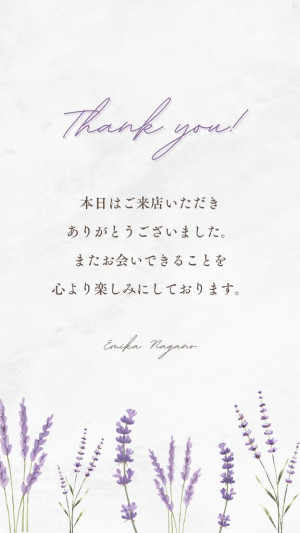 Thank you!
本日はご来店いただき
ありがとうございました。
またお会いできることを
心より楽しみにしております。
Emika Nagano